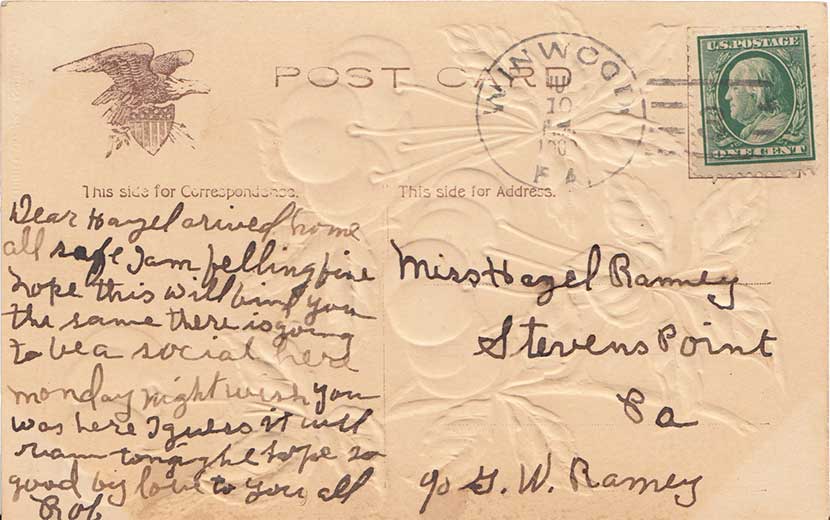 POST CARD
WINWOOD
10
PA.
U.S. POSTAGE
ONE CENT
This side for Correspondence.
This side for Address.
Dear Hazel arived home
all safe I am felling fine
hope this will find you
the same there is going
to be a social here
monday night wish you
was here I guess it will
rain tonight hope so
good by love to you all
Rob
Miss Hazel Ramey
Stevens Point
Pa
c/o G. W. Ramey